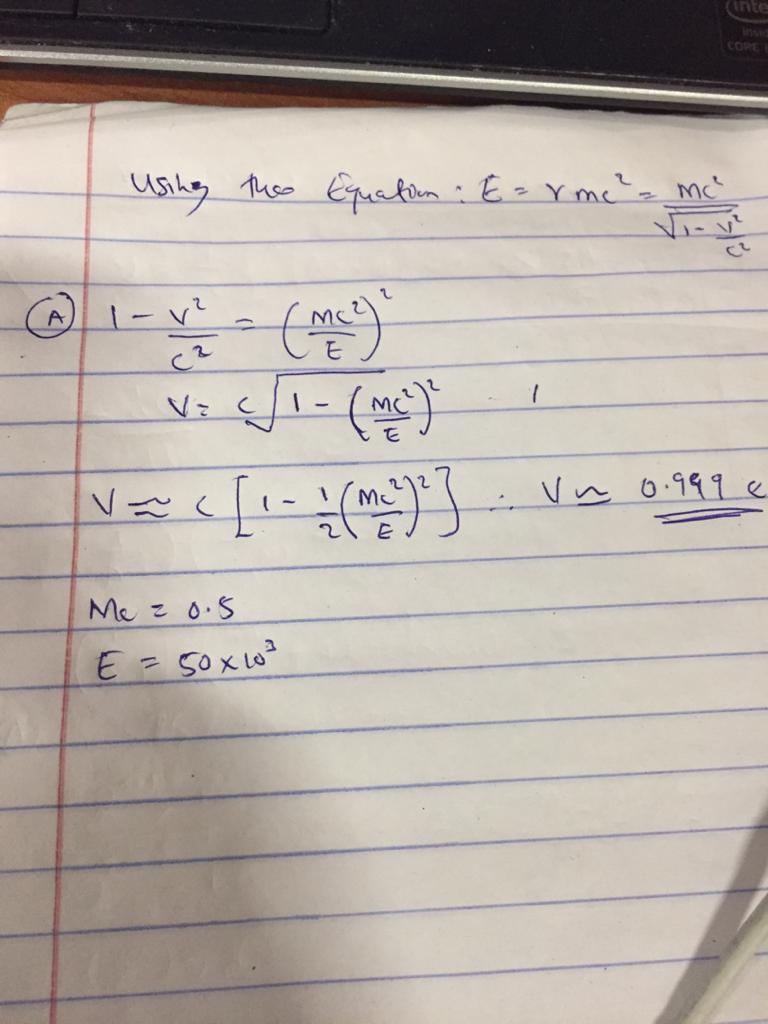 inte
insid
CORE
Using thes Equation : E = γ mc² = mc² / √1 - v²/c²
(A) 1 - v²/c² = (mc²/E)²
V = c√1 - (mc²/E)²
V ≈ c [1 - 1/2 (mc²/E)²] ∴ V ≃ 0.999 c
Mc = 0.5
E = 50 x 10³